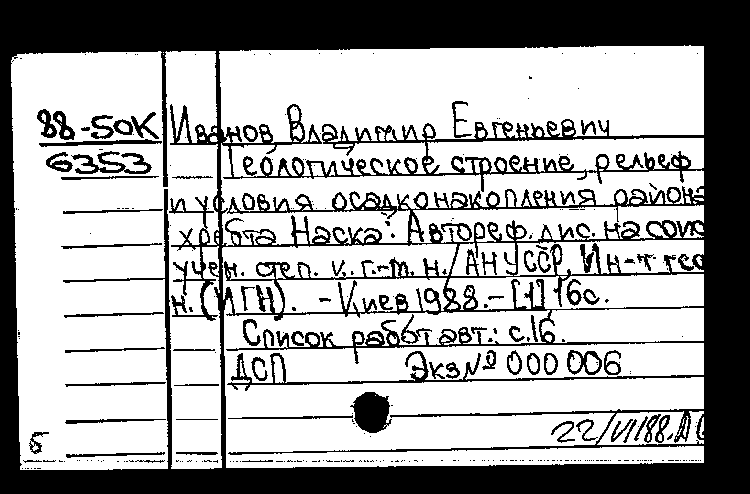 88-50К Иванов Владимир Евгеньевич
6353 Геологическое строение, рельеф
и условия осадконакопления района
хребта Наска: Автореф. дис. на соис
учен. степ. к. г.-м. н. / АН УССР, Ин-т гео
н. (ИГН). - Киев 1988. - [1] 16с.
Список работ авт.: с.16.
ДСП Экз № 000 006
22/VI 88. Д
б